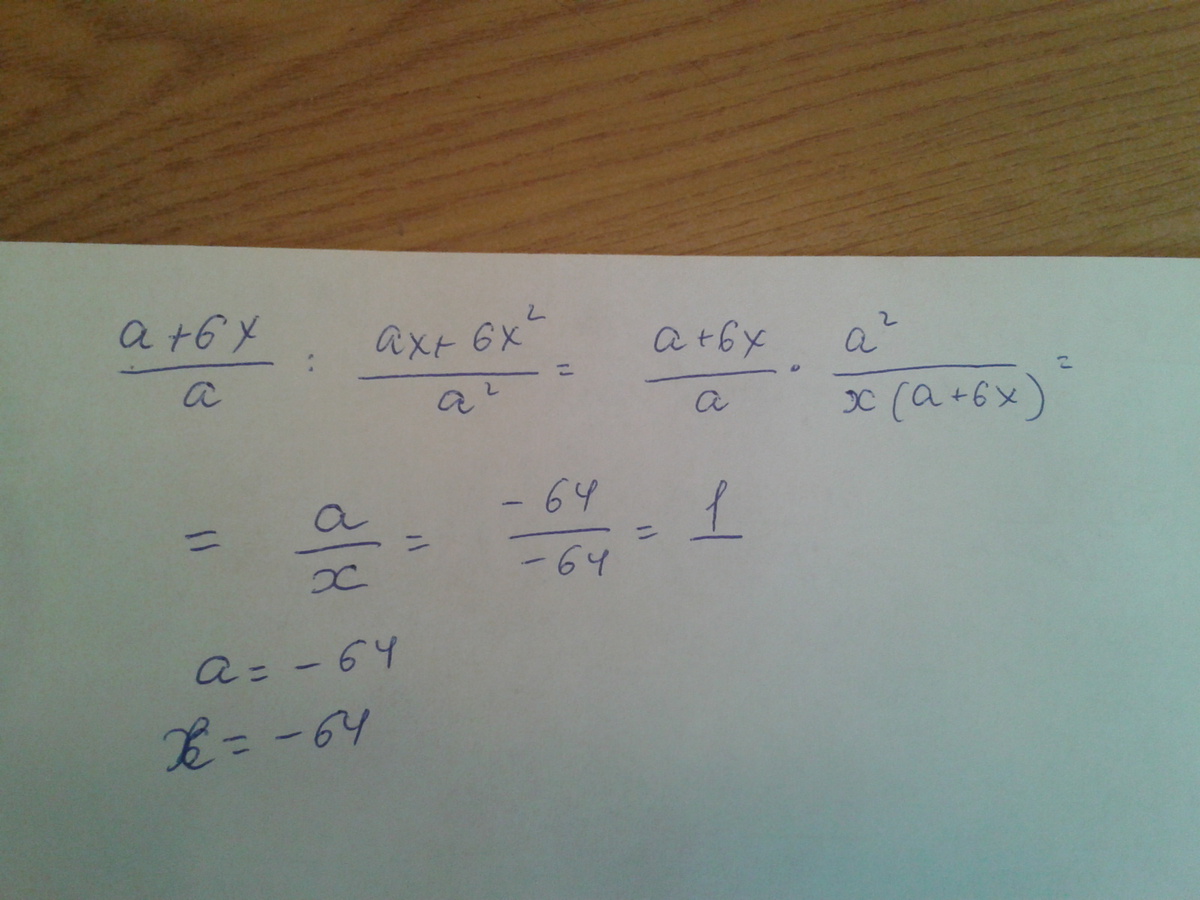 (a+6x)/a : (ax+6x²)/a² = (a+6x)/a · a²/(x(a+6x)) =
= a/x = -64/-64 = 1
a = -64
x = -64